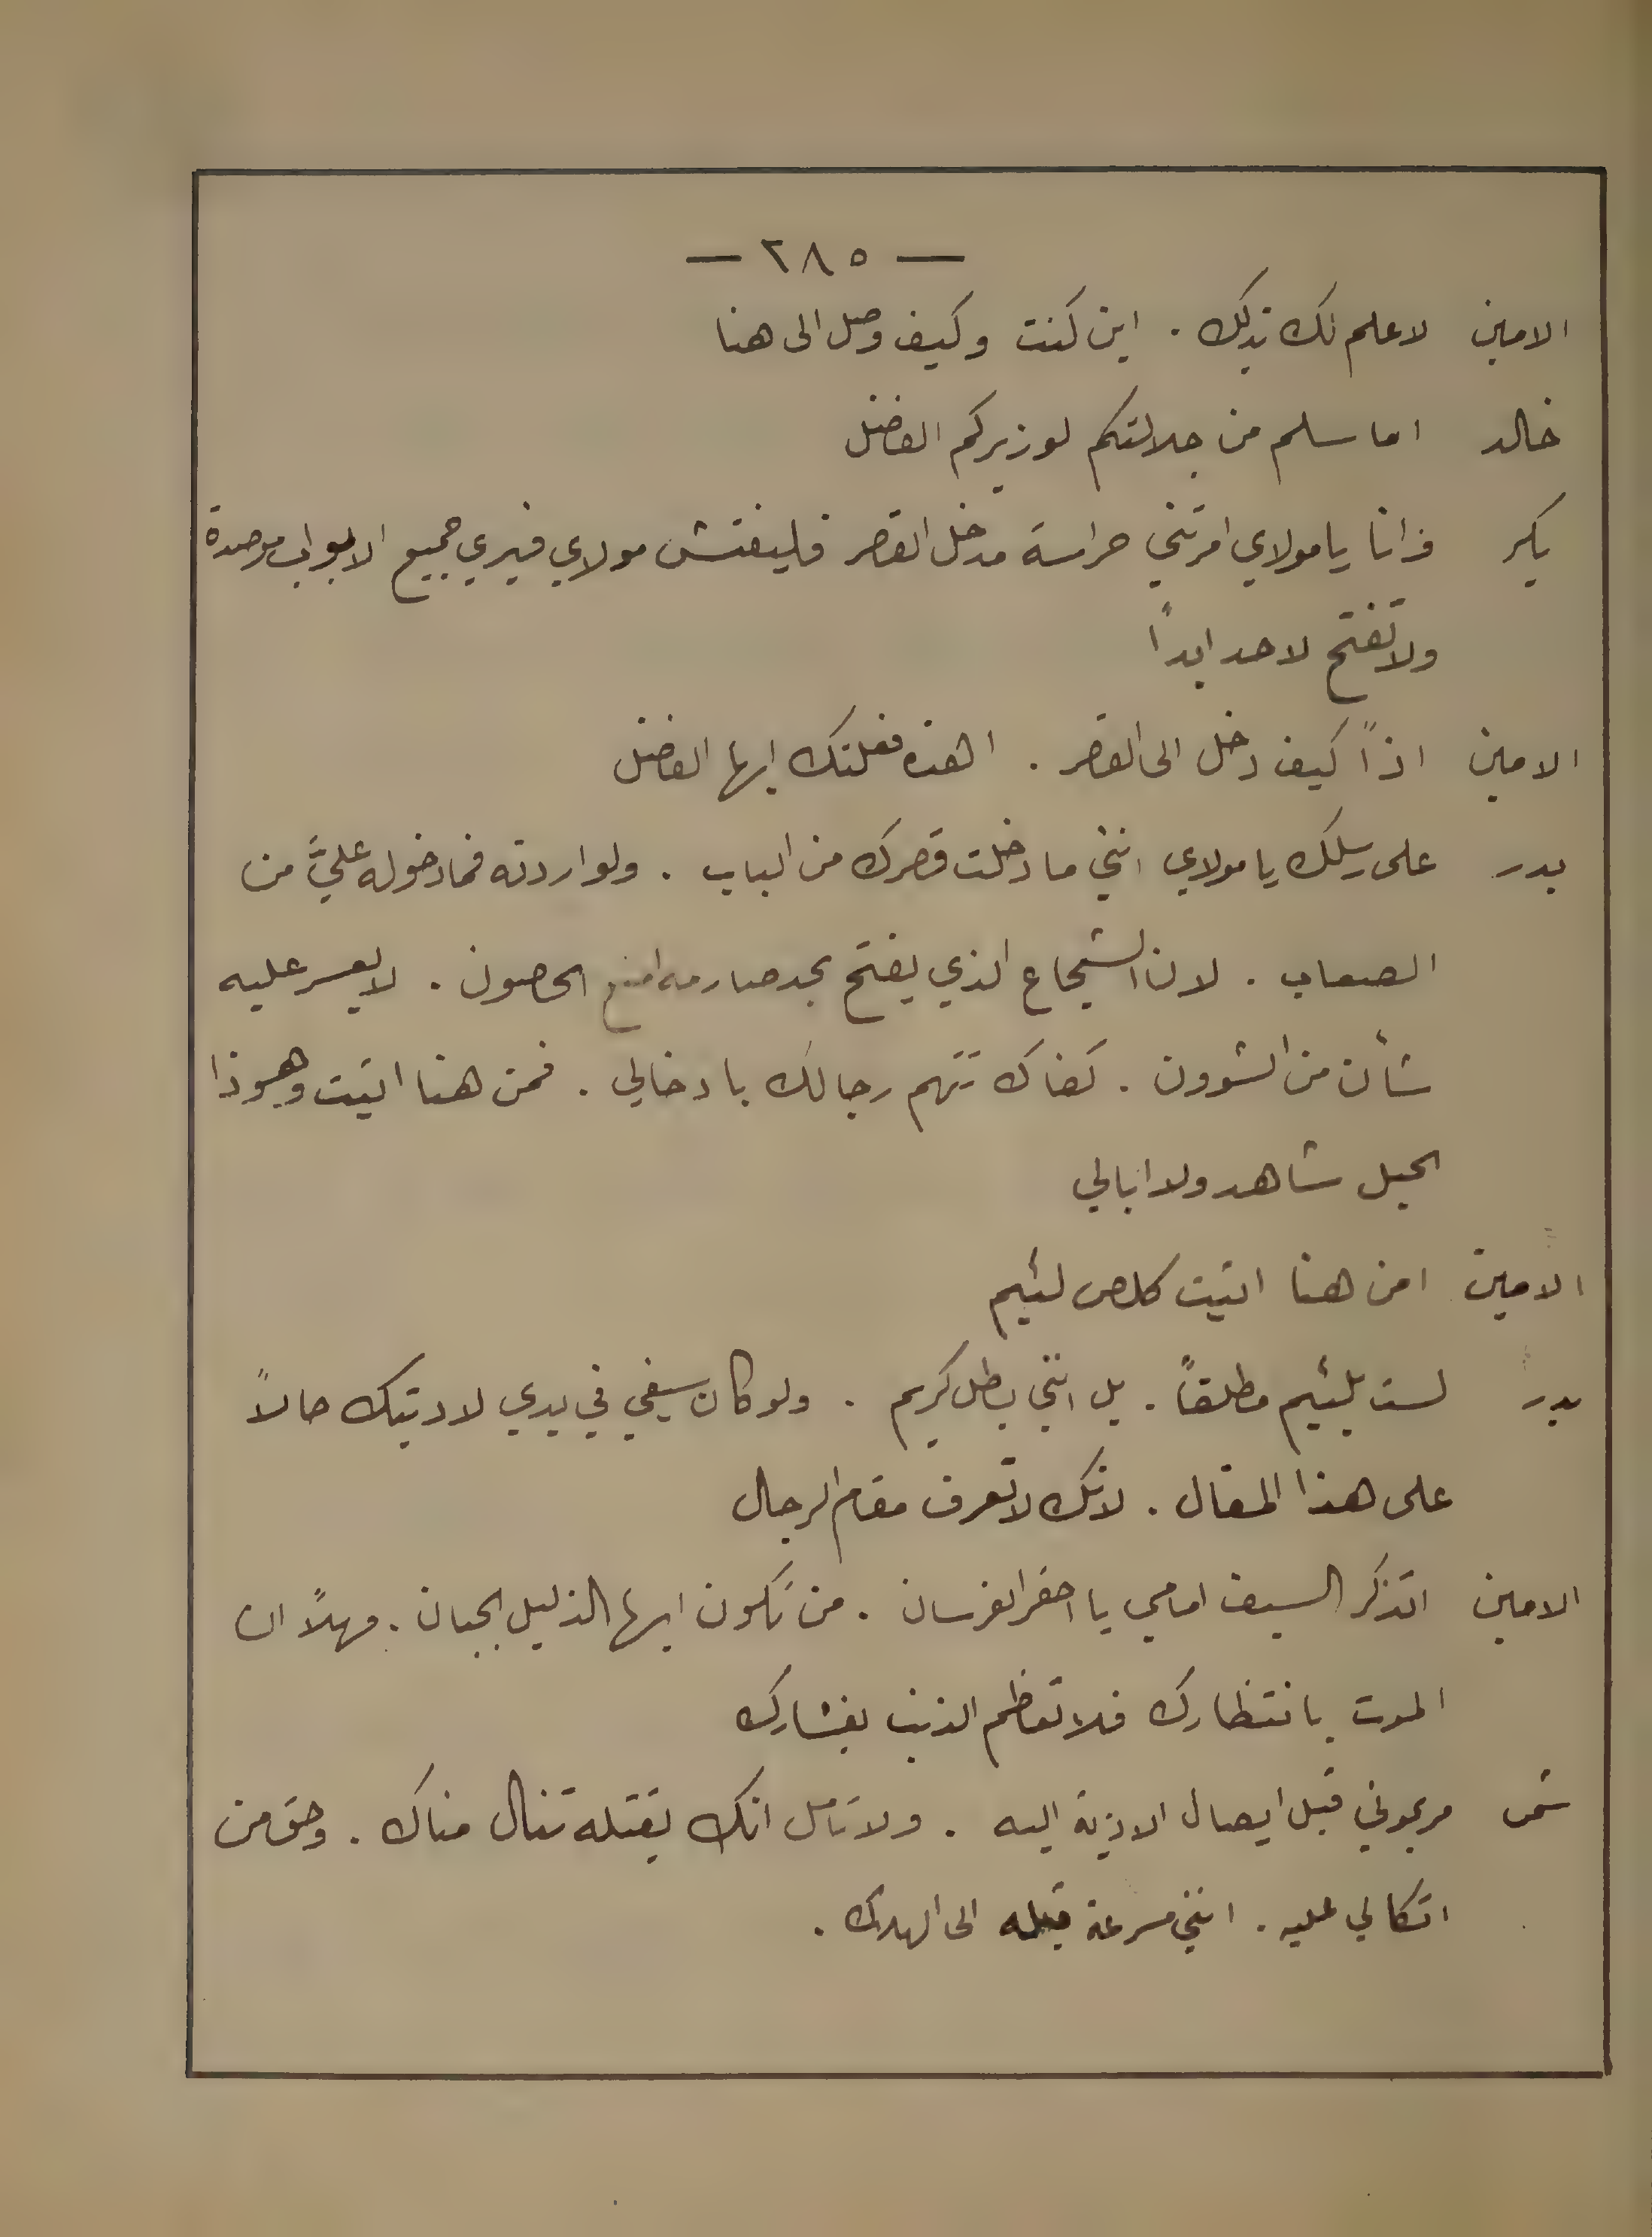 — ٢٨٥ —
الامين لا علم لك بذلك . اين كنت وكيف وصل الى هنا
خالد اما سلم من جلالتكم لوزيركم الفاضل
بكر وانا يا مولاي امرتني حراسة مدخل القصر فليفتش مولاي فيرى جميع الابواب موصدة
ولا تفتح لاحد ابداً
الامين اذاً كيف دخل الى القصر . اهذه فعلتك ايها الفاضل
بدر على رسلك يا مولاي انني ما دخلت قصرك من الباب . ولو اردته فما دخوله عليَّ من
الصعاب . لان الشجاع الذي يفتح بحد صارمه امنع الحصون . لا يعسر عليه
شأن من الشوون . كفاك تتهم رجالك بادخالي . فمن هنا اتيت وهوذا
الحبل شاهد ولا ابالي
الامين امن هنا اتيت كلص لئيم
بدر لست بلئيم مطلقاً . بل انني بطل كريم . ولو كان سيفي في يدي لادبتك حالاً
على هذا المقال . لانك لا تعرف مقام الرجال
الامين اتذكر السيف امامي يا احقر الفرسان . من تكون ايها الذليل الجبان . مهلاً ان
الموت بانتظارك فلا تعاظم الذنب بفشارك
شمس مر بموتي قبل ايصال الاذية اليه . ولا تأمل انك بقتله تنال مناك . وحق من
اتكالي عليه . انني مسرعة قبله الى الهلاك .